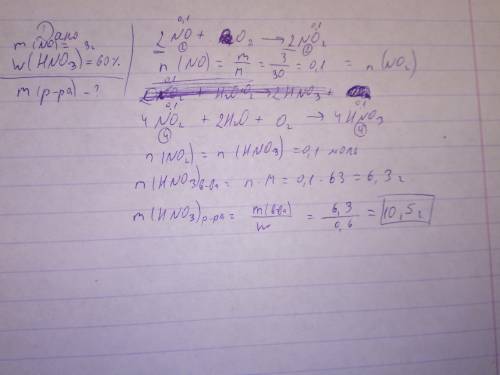 Дано
m(NO)= 3г
w(HNO3)=60%
m(р-ра)-?
0,1 0,1
2NO + O2 → 2NO2
n(NO) = m/M = 3/30 = 0,1 = n(NO2)
0,1 0,1
4NO2 + 2H2O + O2 → 4HNO3
n(NO2) = n(HNO3) = 0,1 моль
m(HNO3)в-ва = n·M = 0,1·63 = 6,3г
m(HNO3)р-ра = m(в-ва)/w = 6,3/0,6 = 10,5г